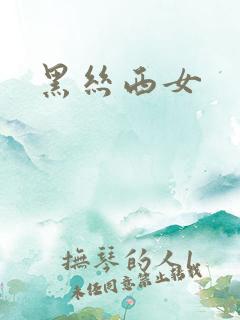 黑丝西女
抚琴的人l
未经同意禁止转载